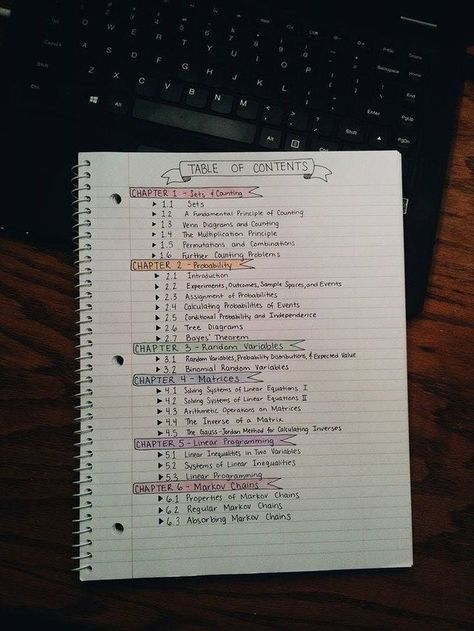 TABLE OF CONTENTS
CHAPTER 1 - Sets & Counting
▶ 1.1 Sets
▶ 1.2 A Fundamental Principle of Counting
▶ 1.3 Venn Diagrams and Counting
▶ 1.4 The Multiplication Principle
▶ 1.5 Permutations and Combinations
▶ 1.6 Further Counting Problems
CHAPTER 2 - Probability
▶ 2.1 Introduction
▶ 2.2 Experiments, Outcomes, Sample Spaces, and Events
▶ 2.3 Assignment of Probabilities
▶ 2.4 Calculating Probabilities of Events
▶ 2.5 Conditional Probability and Independence
▶ 2.6 Tree Diagrams
▶ 2.7 Bayes' Theorem
CHAPTER 3 - Random Variables
▶ 3.1 Random Variables, Probability Distributions, & Expected Value
▶ 3.2 Binomial Random Variables
CHAPTER 4 - Matrices
▶ 4.1 Solving Systems of Linear Equations I
▶ 4.2 Solving Systems of Linear Equations II
▶ 4.3 Arithmetic Operations on Matrices
▶ 4.4 The Inverse of a Matrix
▶ 4.5 The Gauss-Jordan Method for Calculating Inverses
CHAPTER 5 - Linear Programming
▶ 5.1 Linear Inequalities in Two Variables
▶ 5.2 Systems of Linear Inequalities
▶ 5.3 Linear Programming
CHAPTER 6 - Markov Chains
▶ 6.1 Properties of Markov Chains
▶ 6.2 Regular Markov Chains
▶ 6.3 Absorbing Markov Chains